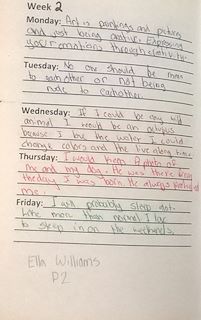 Week 2
Monday: Art is paintings and pictures
and just being creative. Expressing
your emotions through creativity.
Tuesday: No one should be mean
to each other or not being
rude to eachother
Wednesday: If I could be any wild
animal I would be an octopus
because I like the water I could
change colors and the live along time
Thursday: I would keep a photo of
me and my dog. He was there from
the day I was born. He always protected
me.
Friday: I will probably sleep a lot
like more than normal I like
to sleep in on the weekends.
Ella Williams
P2